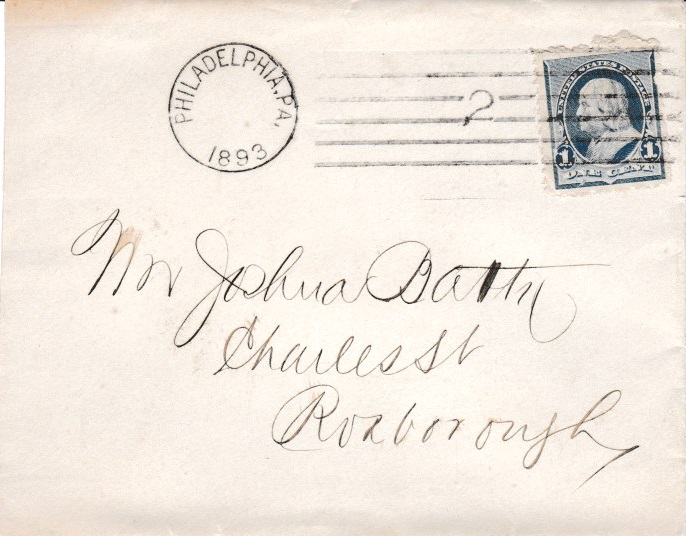 PHILADELPHIA, PA.
1893
2
UNITED STATES POSTAGE
1 1
ONE CENT
Mr Joshua Batty
Charles St
Roxborough,